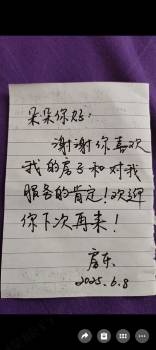 朵朵你好：
谢谢你喜欢
我的房子和对我
服务的肯定！欢迎
你下次再来！
房东
2025.6.8